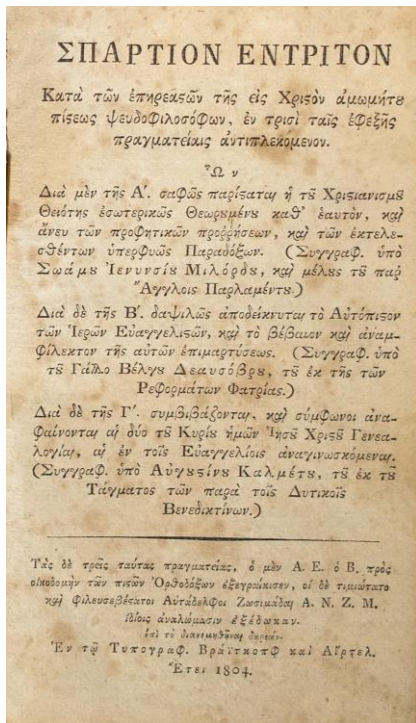 ΣΠΑΡΤΙΟΝ ΕΝΤΡΙΤΟΝ
Κατὰ τῶν ἐπηρεαςῶν τῆς εἰς Χριςὸν ἀμωμήτȣ
πίςεως ψευδοφιλοσόφων, ἐν τρισὶ ταῖς ἐφεξῆς
πραγματείαις ἀντιπλεκόμενον.
Ὧν
Διὰ μὲν τῆς Α΄. σαφῶς παρίςαται ἡ τȣ͂ Χριςιανισμȣ͂
Θειότης ἐσωτερικῶς θεωρȣμένȣ καθ᾽ ἑαυτὸν, καὶ
ἄνευ τῶν προφητικῶν προῤῥήσεων, καὶ τῶν ἐκτελε-
σθέντων ὑπερφυῶς Παραδόξων. (Συγγραφ. ὑπὸ
Σωάμȣ Ἰενυνσίȣ Μιλόρδȣ, καὶ μέλȣς τȣ͂ παρ
Ἄγγλοις Παρλαμέντȣ.)
Διὰ δὲ τῆς Β΄. δαψιλῶς ἀποδείκνυται τὸ Αὐτόπιςον
τῶν Ἱερῶν Εὐαγγελιςῶν, καὶ τὸ βέβαιον καὶ ἀναμ-
φίλεκτον τῆς αὐτῶν ἐπιμαρτύσεως. (Συγγραφ. ὑπὸ
τȣ͂ Γάλλȣ Βέλγȣ Δεαυσόβρȣ, τȣ͂ ἐκ τῆς τῶν
Ρεφορμάτων Φατρίας.)
Διὰ δὲ τῆς Γ΄. συμβιβάζονται, καὶ σύμφωνοι ἀνα-
φαίνονται αἱ δύο τȣ͂ Κυρίȣ ἡμῶν Ἰησȣ͂ Χριςȣ͂ Γενεα-
λογίαι, αἱ ἐν τοῖς Εὐαγγελίοις ἀναγινωσκόμεναι.
(Συγγραφ. ὑπὸ Αὐγȣςίνȣ Καλμέτȣ, τȣ͂ ἐκ τȣ͂
Τάγματος τῶν παρὰ τοῖς Δυτικοῖς
Βενεδικτίνων.)
Τὰς δὲ τρεῖς ταύτας πραγματείας, ὁ μὲν Α. Ε. ὁ Β. πρὸς
οἰκοδομὴν τῶν πιςῶν Ὀρθοδόξων ἐξεγραίκισεν, οἱ δὲ τιμιώτατο
καὶ φιλευσεβέςατοι Αὐτάδελφοι Ζωσιμάδαι Α. Ν. Ζ. Μ.
ἰδίοις ἀναλώμασιν ἐξέδωκαν.
ἐπὶ τὸ διανεμηθῆναι δωρεάν.
Ἐν τῷ Τυπογραφ. Βράϊτκοπφ καὶ Αἵρτελ.
Ἔτει 1804.